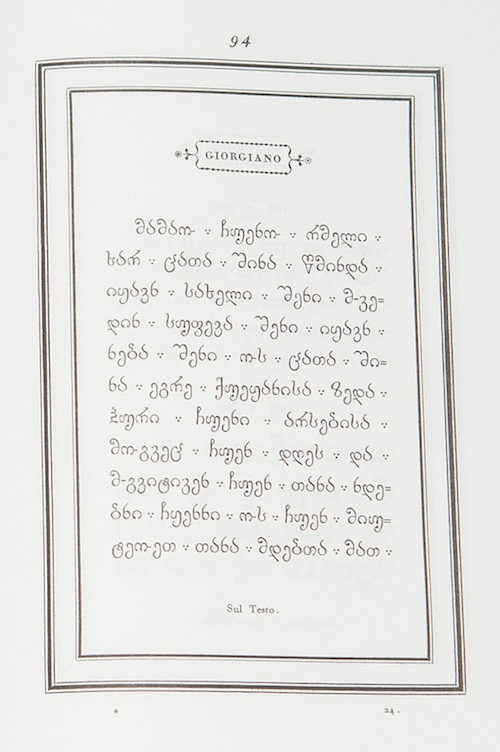 94
GIORGIANO
მამაო- ∵ ჩუენო- ∵ რმელი ∵
ხარ ∵ ცათა ∵ შინა ∵ წმინდა ∵
იყავნ ∵ სახელი ∵ შენი ∵ მ-ვე=
დინ ∵ სუფევა ∵ შენი ∵ იყავნ ∵
ნება ∵ შენი ∵ ო-ს ∵ ცათა ∵ ში=
ნა ∵ ეგრე ∵ ქუეყანისა ∵ ზედა ∵
პური ∵ ჩუენი ∵ არსებისა ∵
მო-გვეც ∵ ჩუენ ∵ დღეს ∵ და ∵
მ-გვიტივენ ∵ ჩუენ ∵ თანა ∵ ნდე=
ბნი ∵ ჩუენნი ∵ ო-ს ∵ ჩუენ ∵ მიუ=
ტეო-ეთ ∵ თანა ∵ მდებთა ∵ მათ ∵
Sul Testo.
* 24.